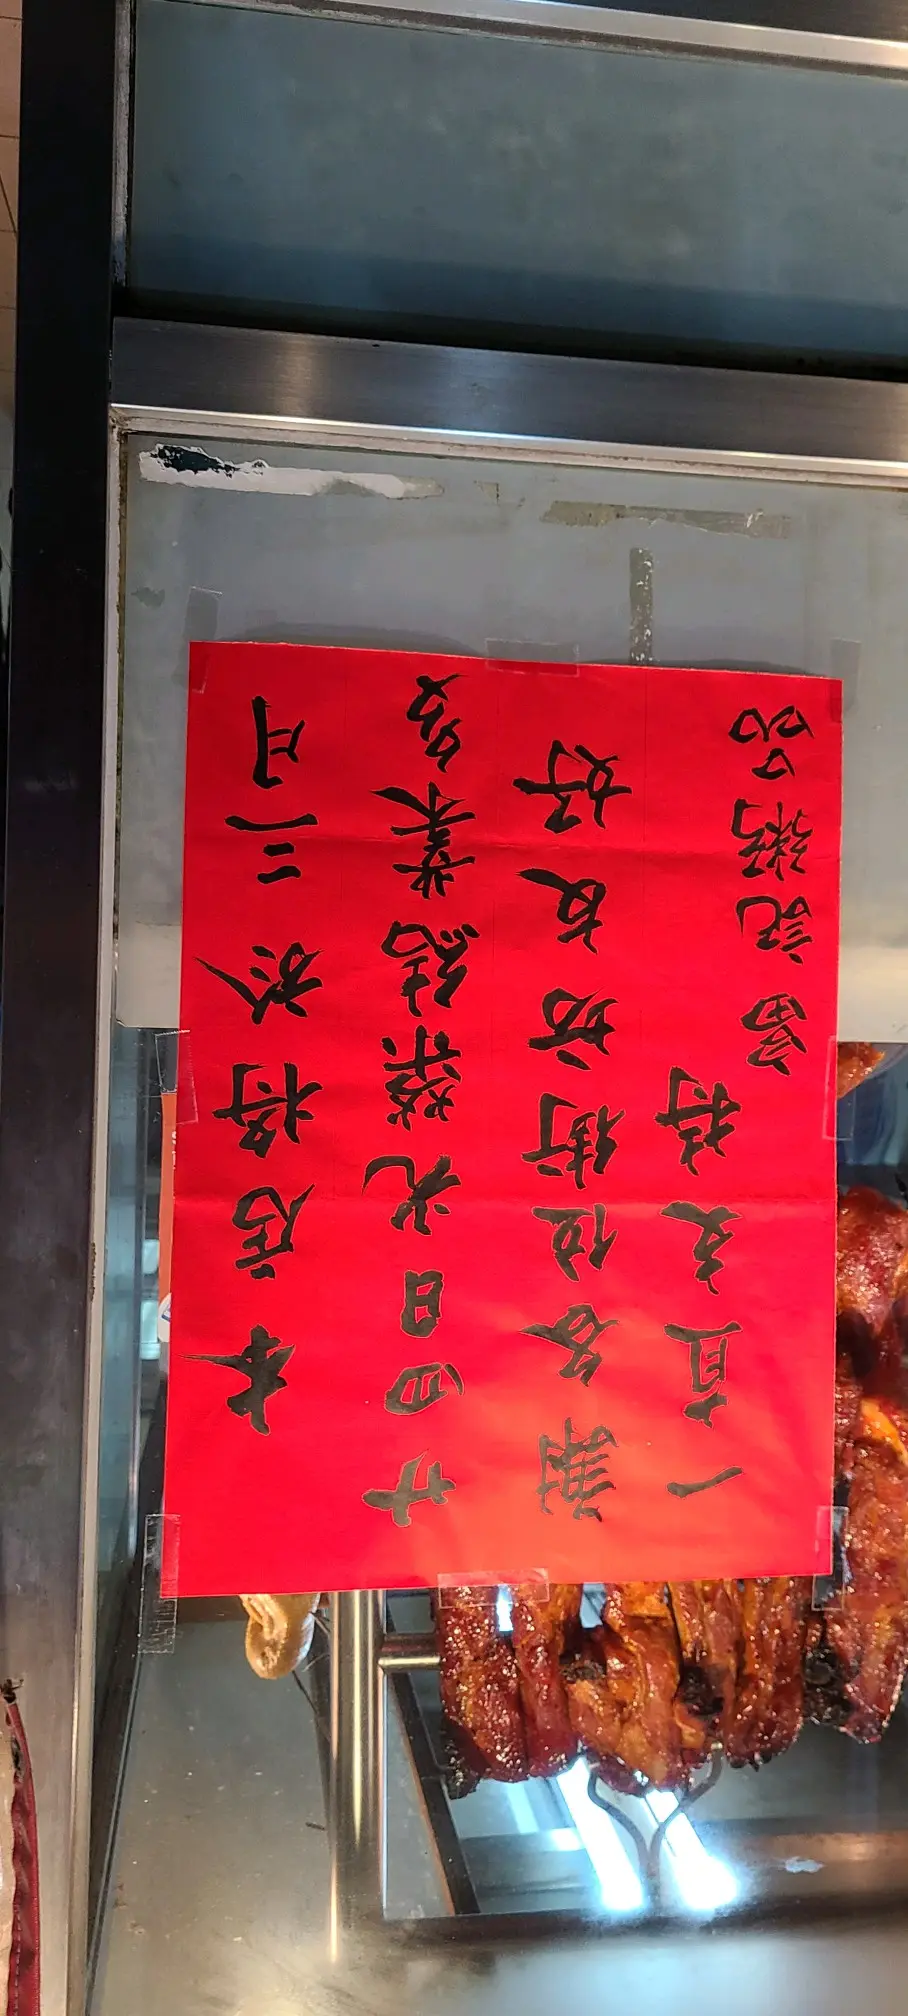 本店將於三月
廿四日光榮結業多
謝各位街坊友好
一直支持
富記粥品